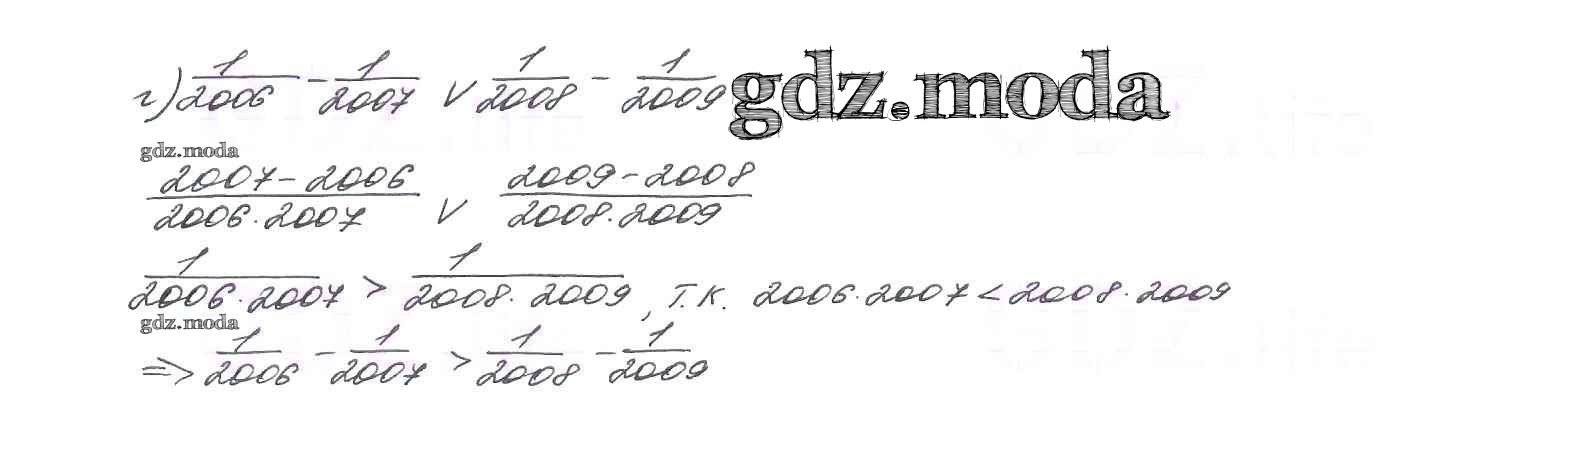 г) 1/2006 - 1/2007 V 1/2008 - 1/2009 gdz.moda
gdz.moda
2007-2006/2006·2007 V 2009-2008/2008·2009
1/2006·2007 > 1/2008·2009, т.к. 2006·2007<2008·2009
gdz.moda
=> 1/2006 - 1/2007 > 1/2008 - 1/2009